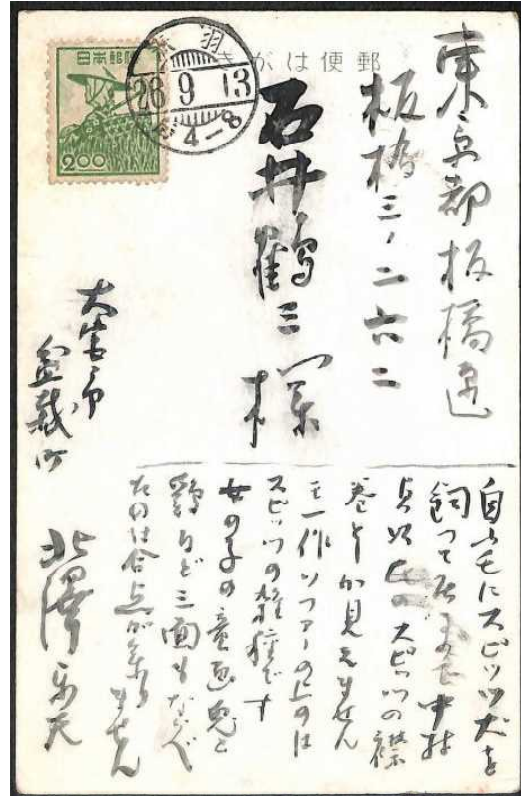 郵便はがき
日本郵便
2.00
26 9 13
東京都板橋区
板橋三ノ二六二
石井鶴三様
大宮市
盆栽町
北澤楽天
自宅にスピッツ犬を
飼って居
スピッツの襟
巻としか見えません
モ一作ソファーの上のは
スピッツの雑種です
女の子の童画兎と
鶏など三面もならべ
たのは合点が参りません